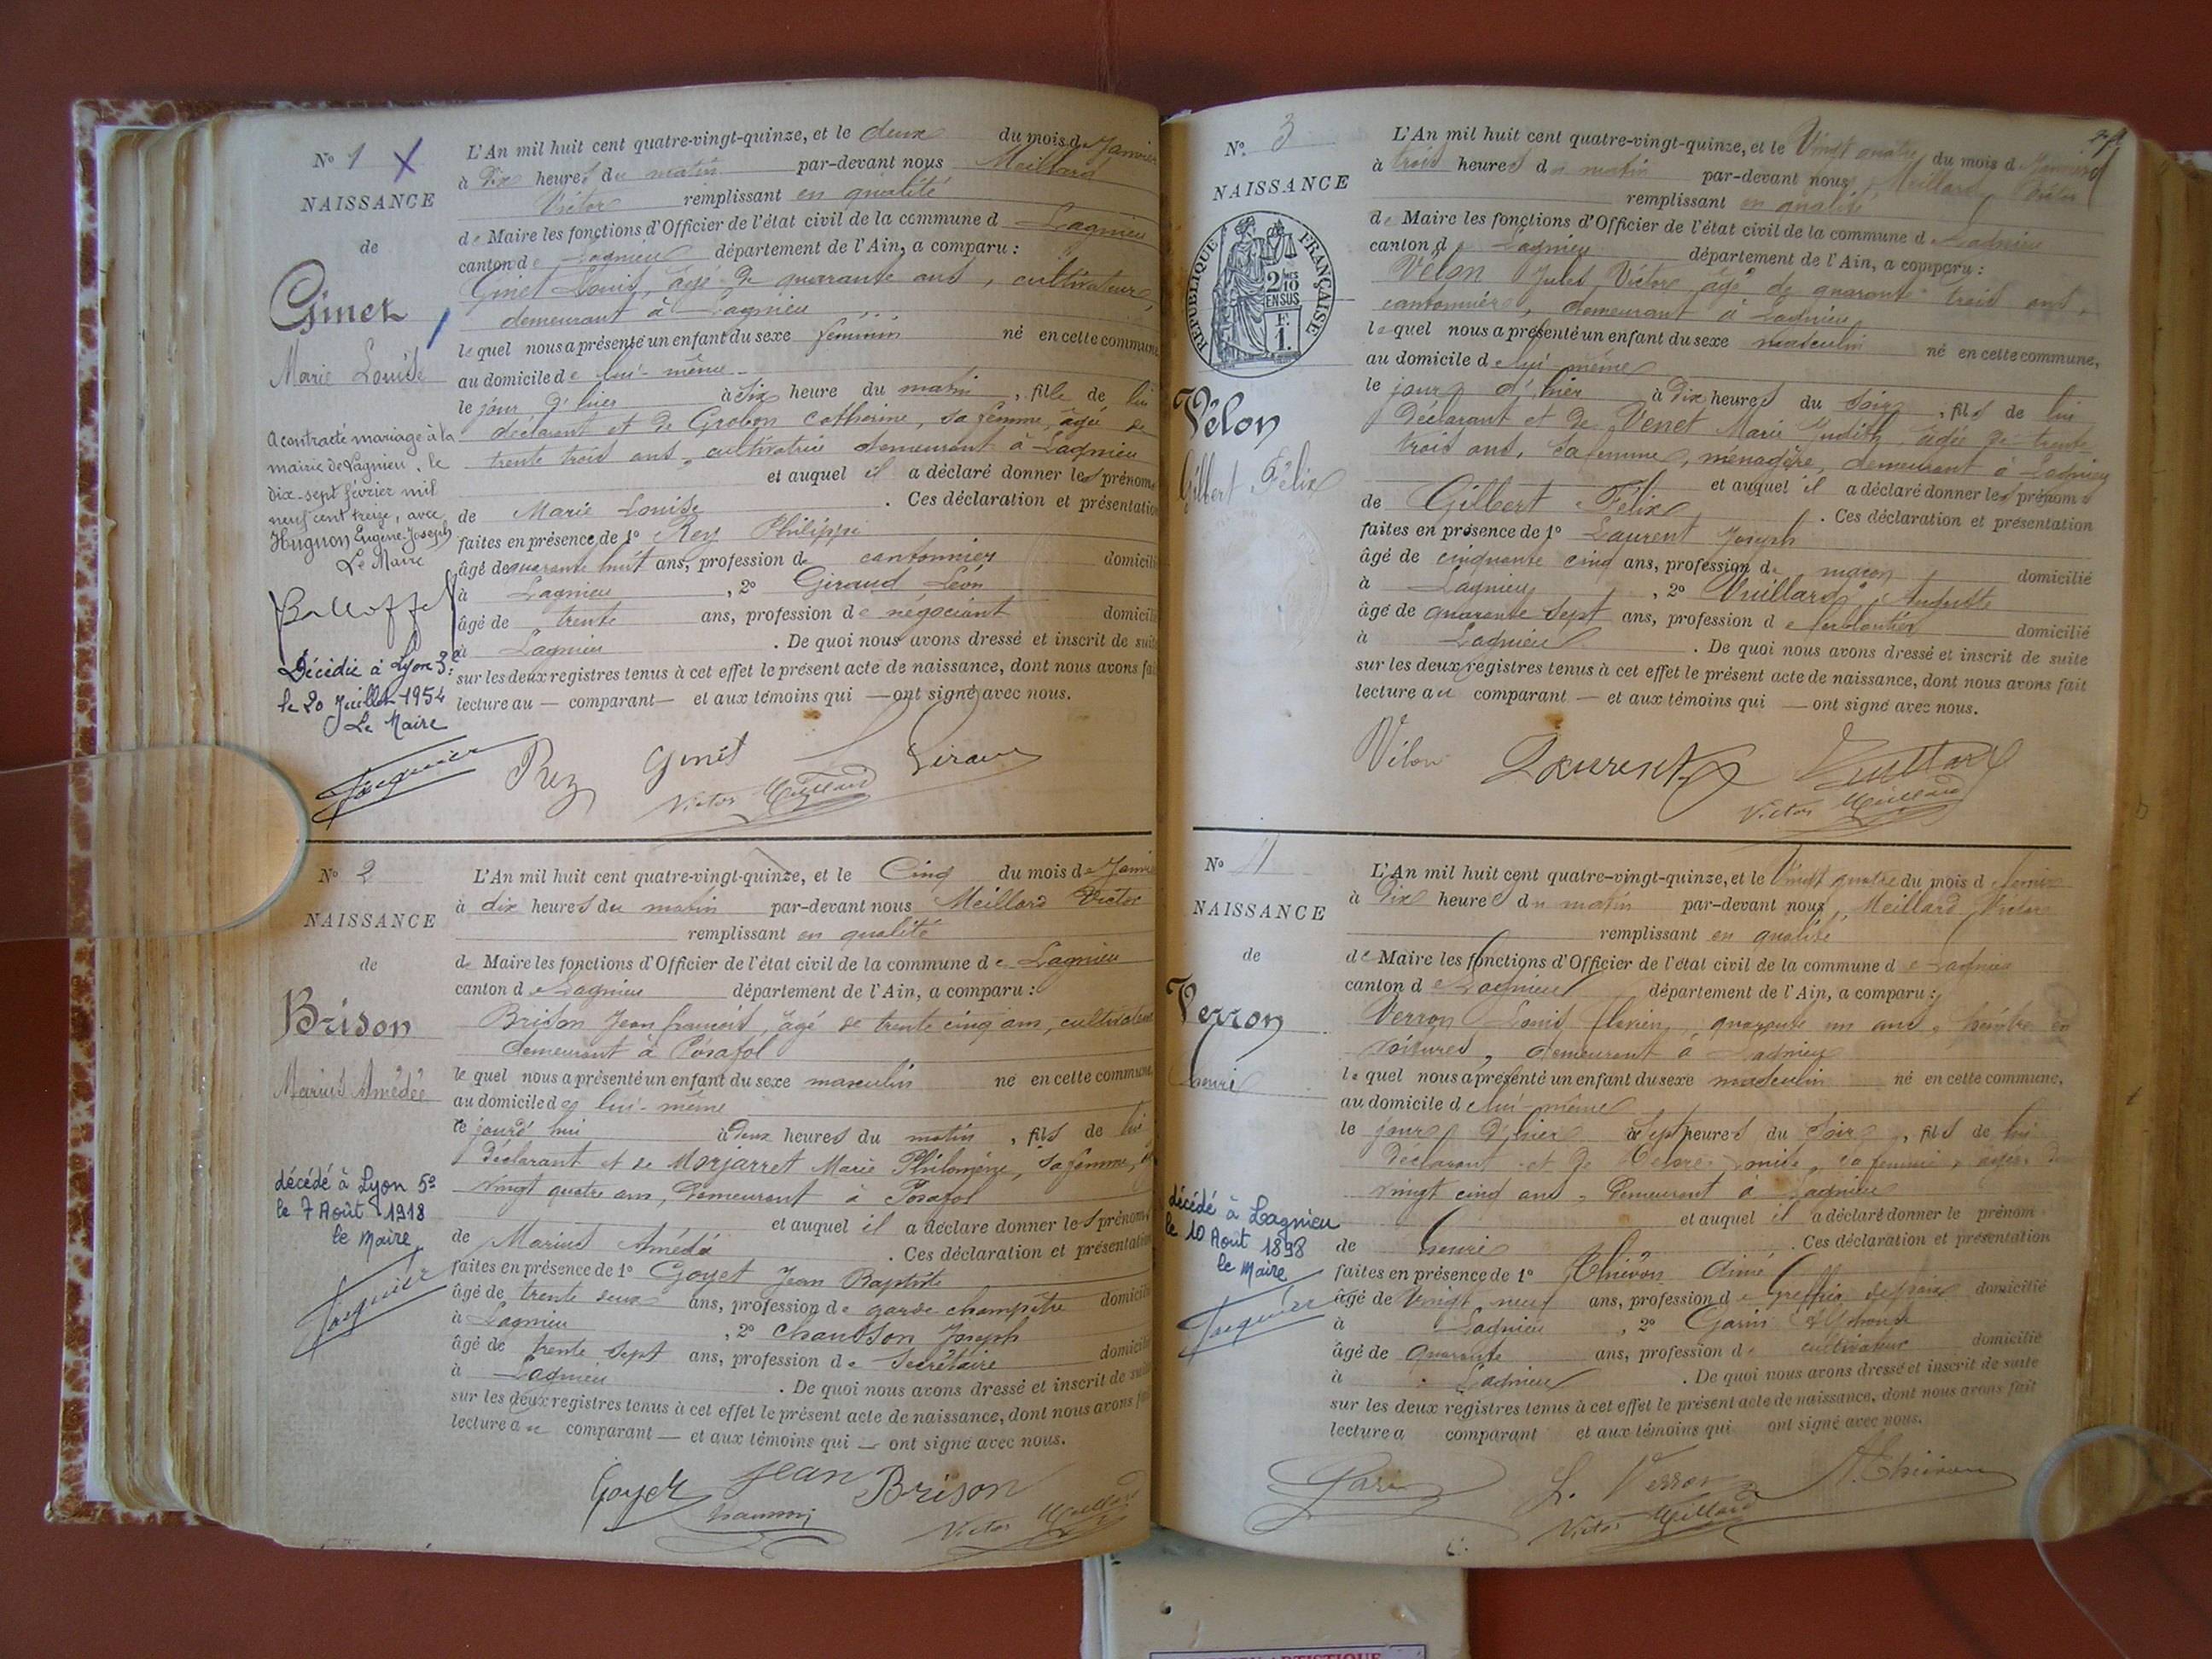 Nº 1 X
NAISSANCE
de
Ginet
Marie Louise
A contracté mariage à la
mairie de Lagnieu, le
dix-sept février mil
neuf cent treize, avec
Hugnon Eugène-Joseph
Le Maire
Décédée à Lyon 3e
le 20 Juillet 1954
Le Maire
L'An mil huit cent quatre-vingt-quinze, et le deux du mois de Janvier
à Dix heures du matin par-devant nous Meillard
Victor remplissant en qualité
de Maire les fonctions d'Officier de l'état civil de la commune d Lagnieu
canton de Lagnieu département de l'Ain, a comparu :
Ginet Louis, âgé de quarante ans, cultivateur,
demeurant à Lagnieu
lequel nous a présenté un enfant du sexe féminin né en cette commune
au domicile de lui-même
le jour d'hier à six heure du matin, fille de lui
déclarant et de Grobon Catherine, sa femme, âgée de
trente trois ans, cultivatrice demeurant à Lagnieu
et auquel il a déclaré donner les prénoms
de Marie Louise . Ces déclaration et présentation
faites en présence de 1º Rey Philippe
âgé de quarante huit ans, profession de cantonnier domicilié
à Lagnieu , 2º Giraud Léon
âgé de trente ans, profession de négociant domicilié
à Lagnieu . De quoi nous avons dressé et inscrit de suite
sur les deux registres tenus à cet effet le présent acte de naissance, dont nous avons fait
lecture au — comparant — et aux témoins qui — ont signé avec nous.
Rey Ginet Giraud
Victor Meillard
Nº 2
NAISSANCE
de
Brison
Marius Amédée
décédé à Lyon 5e
le 7 Août 1918
le Maire
L'An mil huit cent quatre-vingt-quinze, et le Cinq du mois de Janvier
à dix heures du matin par-devant nous Meillard Victor
remplissant en qualité
de Maire les fonctions d'Officier de l'état civil de la commune de Lagnieu
canton de Lagnieu département de l'Ain, a comparu :
Brison Jean François, âgé de trente cinq ans, cultivateur
demeurant à Posafol
lequel nous a présenté un enfant du sexe masculin né en cette commune
au domicile de lui-même
le jourd'hui à deux heures du matin, fils de lui
déclarant et de Morjarret Marie Philomène, sa femme,
vingt quatre ans, demeurant à Posafol
et auquel il a déclaré donner les prénoms
de Marius Amédé . Ces déclaration et présentation
faites en présence de 1º Goyet Jean Baptiste
âgé de trente deux ans, profession de garde champêtre domicilié
à Lagnieu , 2º Chausson Joseph
âgé de trente sept ans, profession de Secrétaire domicilié
à Lagnieu . De quoi nous avons dressé et inscrit de suite
sur les deux registres tenus à cet effet le présent acte de naissance, dont nous avons fait
lecture au comparant — et aux témoins qui — ont signé avec nous.
Goyet Jean Brison
Victor Meillard
Nº 3
NAISSANCE
RÉPUBLIQUE FRANÇAISE
2/10
EN SUS
F.
1.
Vélon
Gilbert Félix
L'An mil huit cent quatre-vingt-quinze, et le Vingt quatre du mois d Janvier
à trois heures du matin par-devant nous, Meillard Victor
remplissant en qualité
de Maire les fonctions d'Officier de l'état civil de la commune de Lagnieu
canton d Lagnieu département de l'Ain, a comparu :
Vélon Jules Victor âgé de quarante trois ans,
cantonnier, demeurant à Lagnieu
lequel nous a présenté un enfant du sexe masculin né en cette commune,
au domicile de lui-même
le jour d'hier à Dix heures du soir, fils de lui
déclarant et de Venet Marie Judith, âgée de trente
trois ans, sa femme, ménagère, demeurant à Lagnieu
et auquel il a déclaré donner les prénoms
de Gilbert Félix . Ces déclaration et présentation
faites en présence de 1º Laurent Joseph
âgé de cinquante cinq ans, profession de maçon domicilié
à Lagnieu , 2º Vuillard Auguste
âgé de quarante sept ans, profession de ferblantier domicilié
à Lagnieu . De quoi nous avons dressé et inscrit de suite
sur les deux registres tenus à cet effet le présent acte de naissance, dont nous avons fait
lecture au comparant — et aux témoins qui — ont signé avec nous.
Vélon Laurent Vuillard
Victor Meillard
Nº 4
NAISSANCE
de
Verron
henri
décédé à Lagnieu
le 10 Août 1898
le Maire
L'An mil huit cent quatre-vingt-quinze, et le Vingt quatre du mois d Janvier
à Dix heures du matin par-devant nous, Meillard Victor
remplissant en qualité
de Maire les fonctions d'Officier de l'état civil de la commune de Lagnieu
canton de Lagnieu département de l'Ain, a comparu :
Verron Louis quarante un ans, peintre en
voitures, demeurant à Lagnieu
lequel nous a présenté un enfant du sexe masculin né en cette commune,
au domicile de lui-même
le jour d'hier à Sept heures du soir, fils de lui
déclarant et de sa femme, âgée de
vingt cinq ans, demeurant à Lagnieu
et auquel il a déclaré donner le prénom
de henri . Ces déclaration et présentation
faites en présence de 1º Thévon Aimé
âgé de Vingt neuf ans, profession de Greffier de paix domicilié
à Lagnieu , 2º Garin
âgé de quarante ans, profession de cultivateur domicilié
à Lagnieu . De quoi nous avons dressé et inscrit de suite
sur les deux registres tenus à cet effet le présent acte de naissance, dont nous avons fait
lecture a comparant et aux témoins qui ont signé avec nous.
Garin L. Verron
Victor Meillard